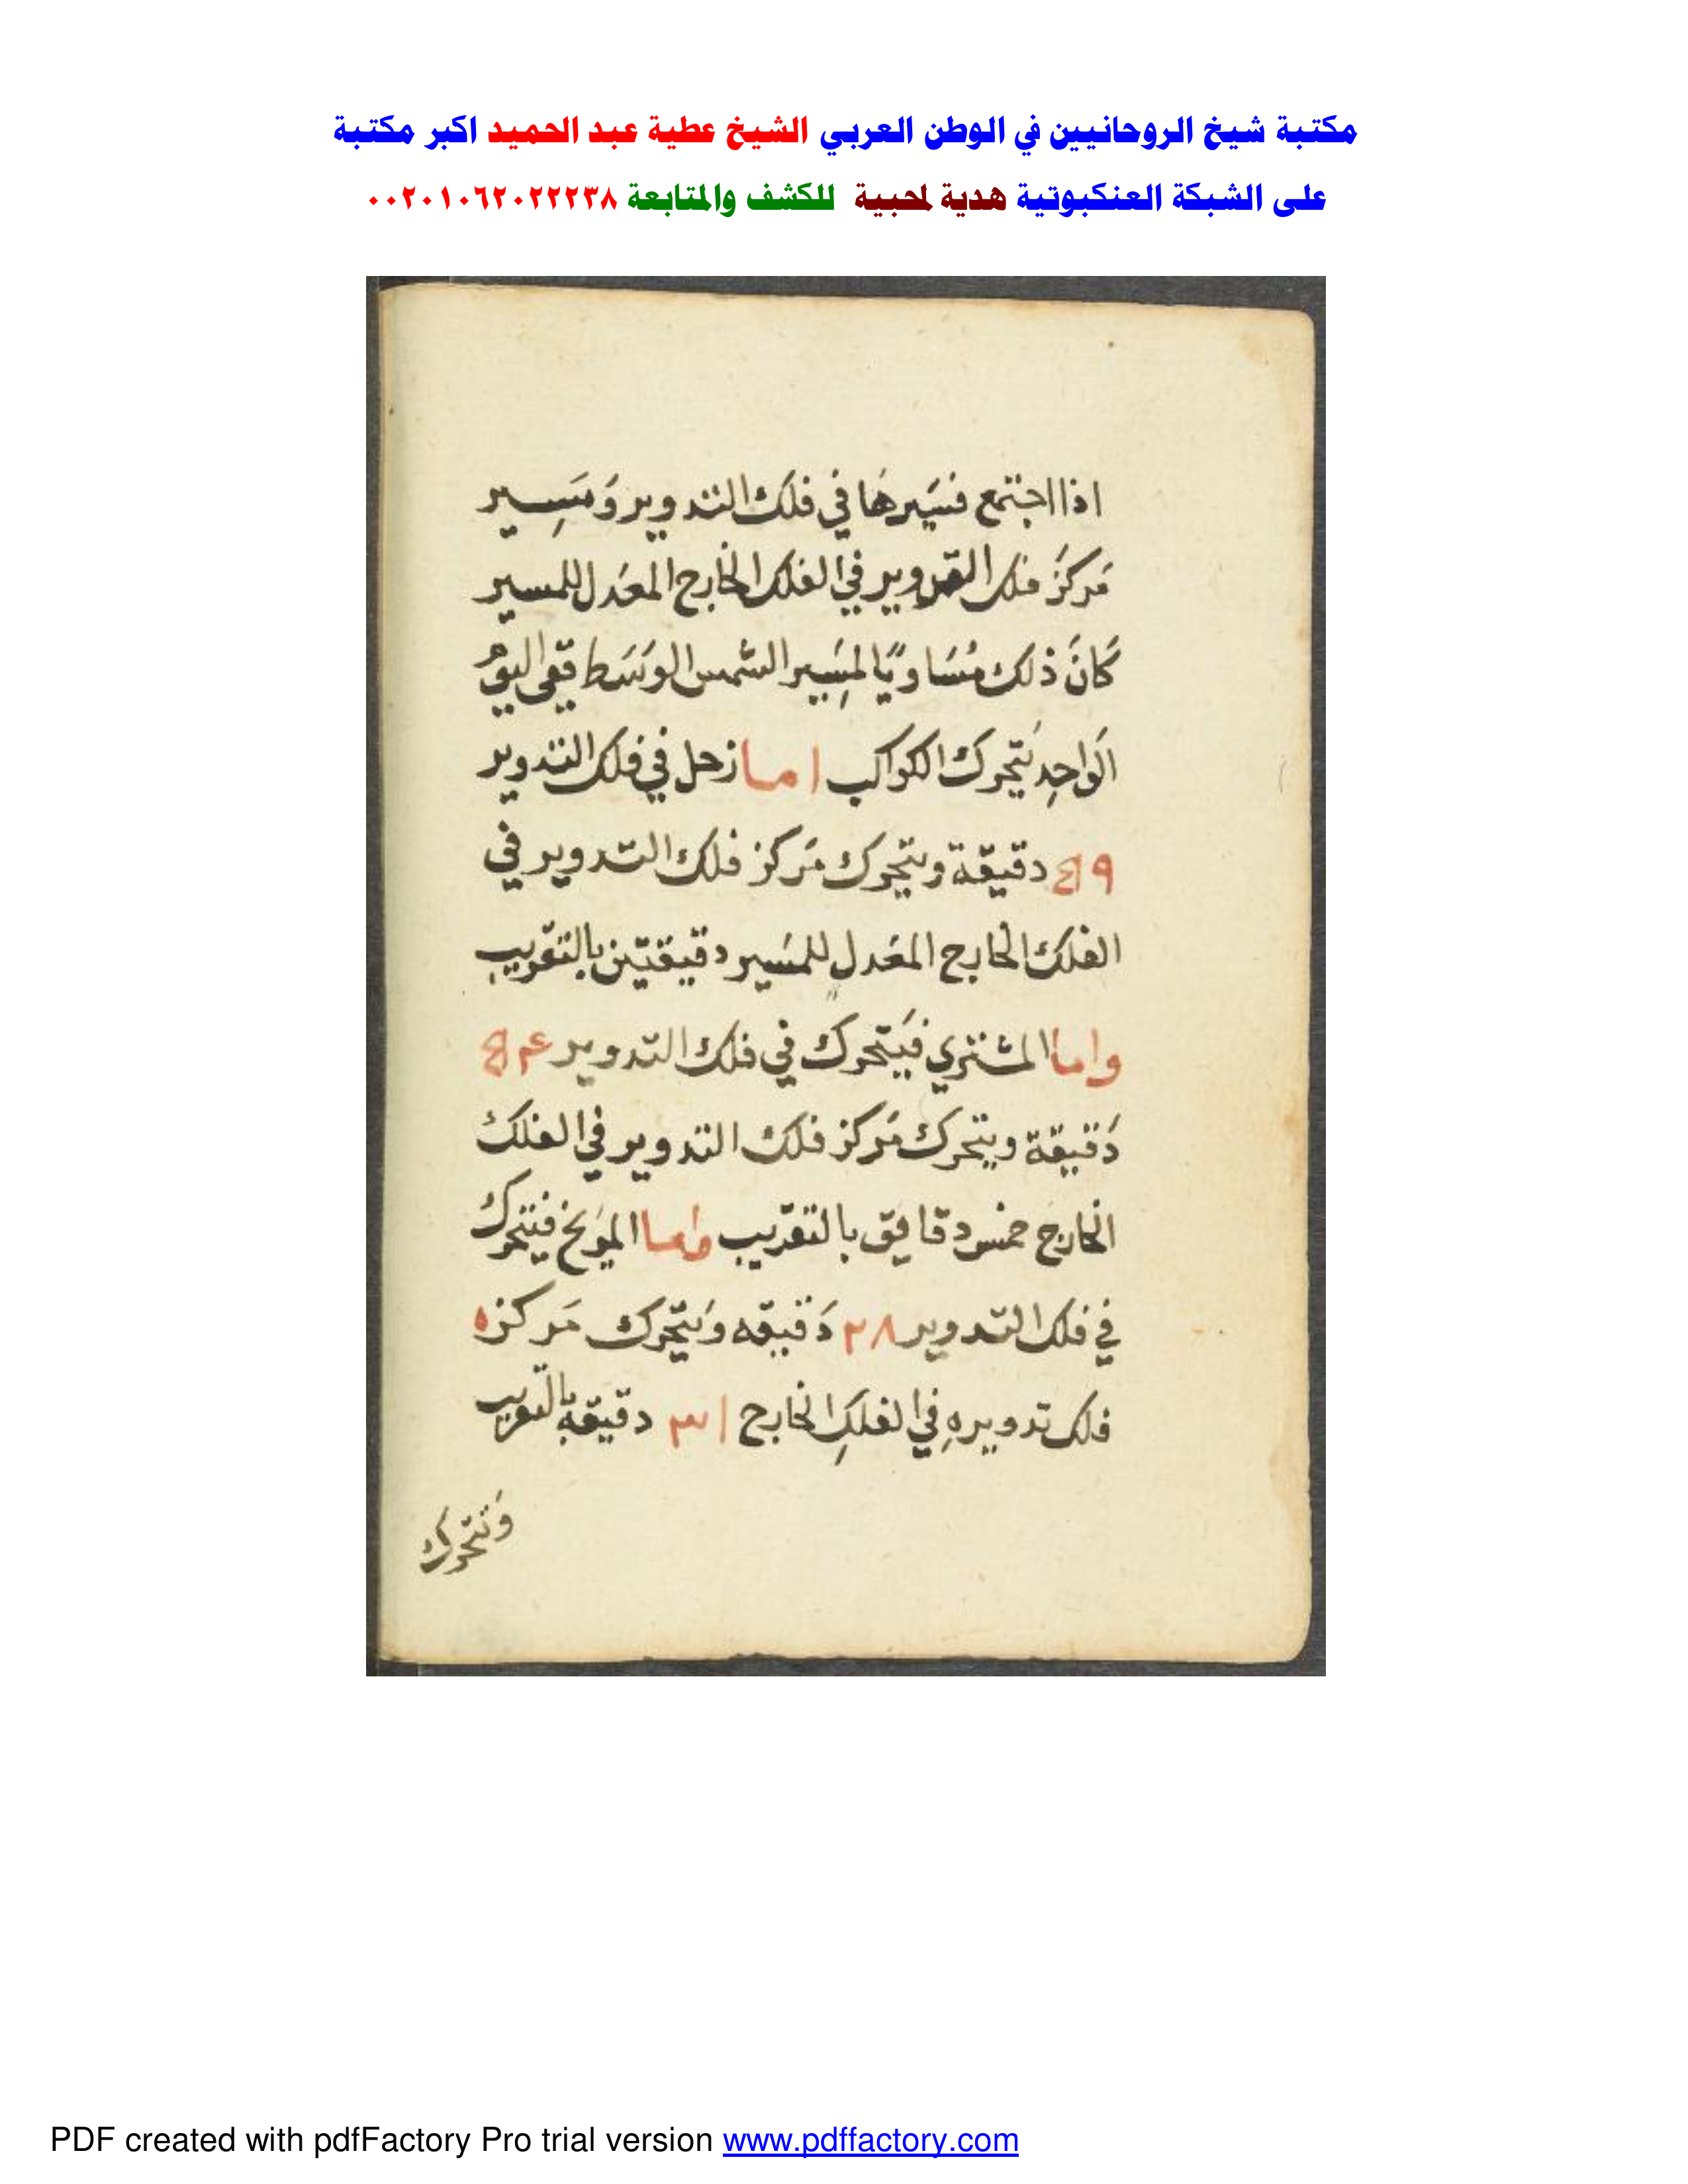 مكتبة شيخ الروحانيين في الوطن العربي الشيخ عطية عبد الحميد اكبر مكتبة
على الشبكة العنكبوتية هدية لمحبية للكشف والمتابعة ٠٠٢٠١٠٦٢٠٢٢٢٣٨
اذا اجتمع فسَيرهَا في فلك التدوير وَمَسِير
مَركزَ فلك التدوير في الفلك الخارج المعَدل للمسير
كَانَ ذلك مُسَاويًا لمِسَير الشمس الوَسَط ففى اليوم
الَواحِد يَتحرك الكواكب اما زحل في فلك التدوير
دقيقة ويتحرك مَركز فلك التدوير في
الفلك الخارج المعَدل للمسَير دقيقتين بالتقريب
واما المشتري فيَتحرك في فلك التدوير
دَقيقة ويتحرك مَركز فلك التدوير في الفلك
الخارج خمس دقايق بالتقريب واما المَريخ فيتحرك
في فلك التدوير ٢٨ دَقيقه وَيتحرك مَركزه
فلك تدويرهِ في الفلكِ الخارج ٣١ دقيقة بالتقريب
وَتتحرك
PDF created with pdfFactory Pro trial version www.pdffactory.com